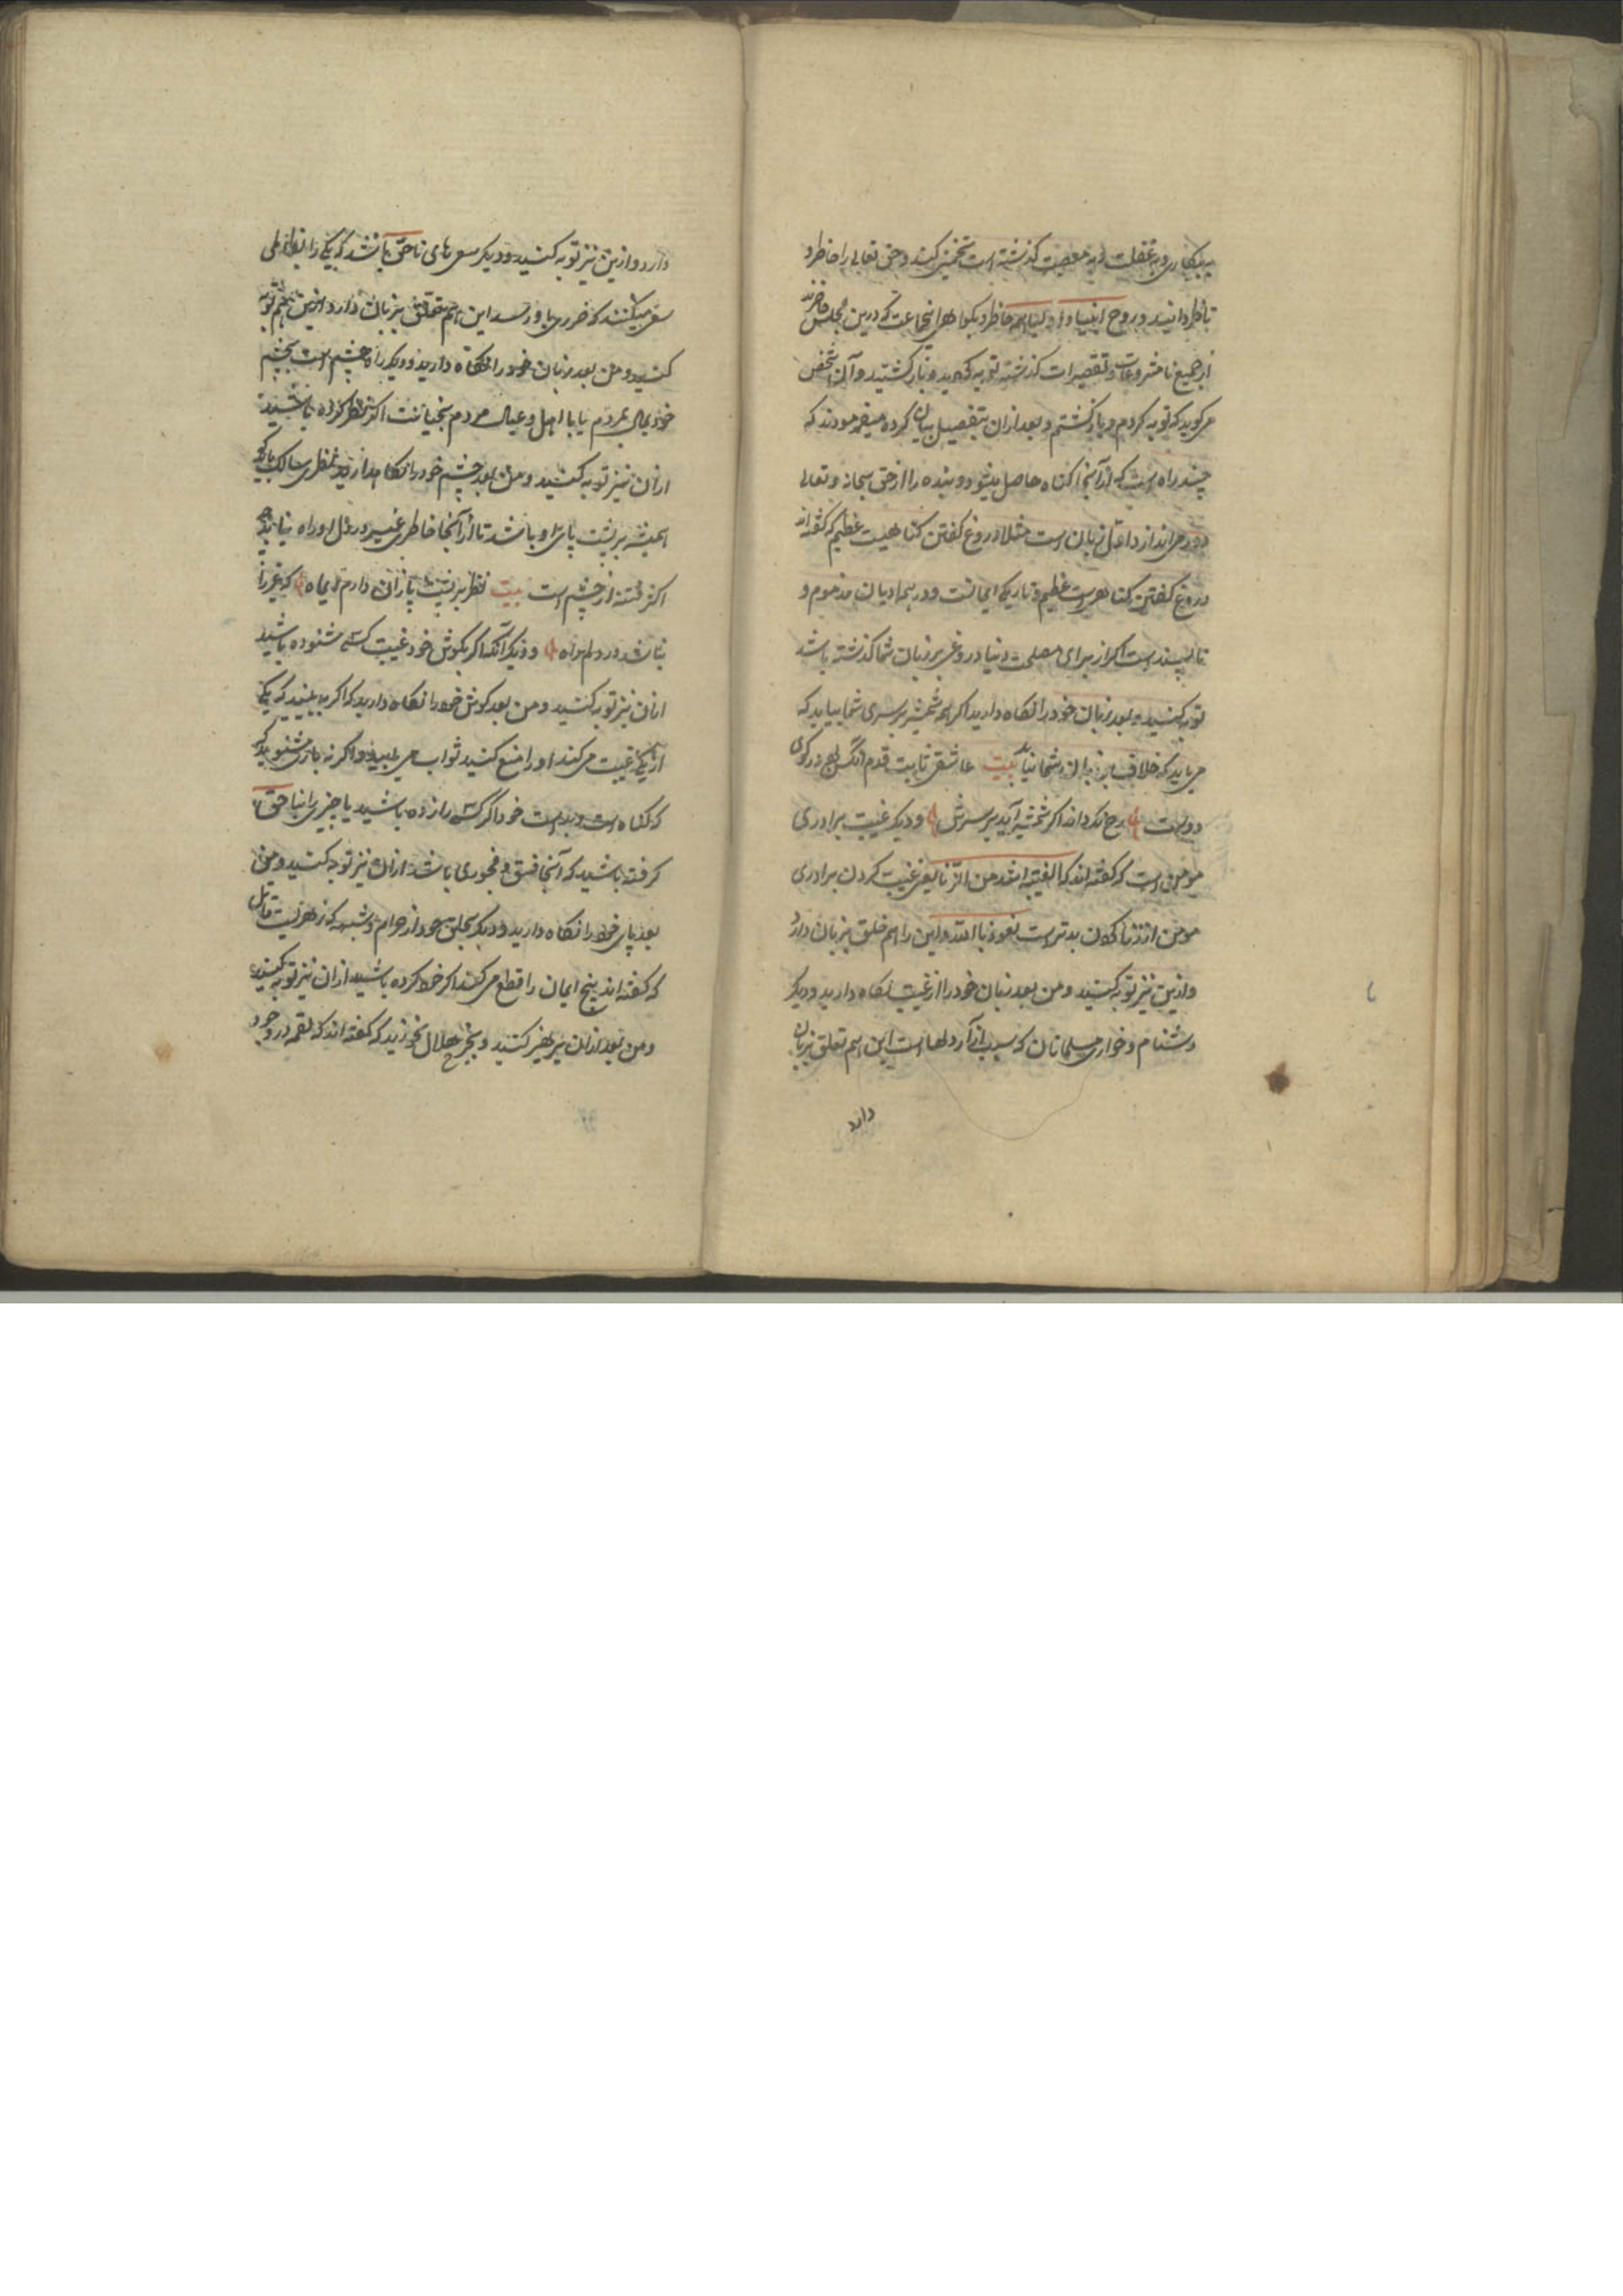 به بیکاری و به غفلت و به معصیت کذشته است تخمین کنید و حق تعالی را حاظر و
ناظر دانید و روح انبیا و اولیا همه حاظر و بکواهی اینجماعت که درین مجلس حاضرند
از جمیع نامشروعات و تقصیرات کذشته توبه کردید و باز کشتید و آن شخص
می کوید که توبه کردم و باز کشتم و بعد ازان بتفصیل بیان کرده میفرمودند که
چند راه است که از آنجا کناه حاصل میشود و بنده را از حق سبحانه و تعالی
دور می اندازد اول زبان است مثلا دروغ کفتن کناهیست عظیم که کفته اند
دروغ کفتن کناهی است عظیم و تاریکی ایمانست و در همه ادیان مذموم و
ناپسند است اکر از برای مصلحت دنیا دروغی بر زبان شما کذشته باشد
توبه کنید و بعد زبان خود را نکاه دارید اکر چه شمشیر بر سری شما بیاید که
می باید که خلاف بر زبان شما نیاید بیت عاشق ثابت قدم آنکس بود در کوی
دوست رخ نکرداند اکر شمشیر آید بر سرش و دیکر غیبت برادری
مومن است که کفته اند که الغیبة اشد من الزنا یعنی غیبت کردن برادری
مومن از زنا کردن بدتر است نعوذ بالله و این را هم خلق بزبان دارد
و ازین نیز توبه کنید و من بعد زبان خود را از غیبت نکاه دارید و دیکر
دشنام و خواری مسلمانان که سبب آزار دلها است این هم تعلق بزبان
دارد
دارد و ازین نیز توبه کنید و دیکر سعی های ناحق باشد که یکی را
سفر میکنند که ضرری باو رسد این هم تعلق بزبان دارد ازین هم توبه
کنید و من بعد زبان خود را نکاه دارید و دیکر راه چشم است بچشم
خود بمال مردم یا با اهل و عیال مردم بخیانت اکر نظر کرده باشید
ازان نیز توبه کنید و من بعد چشم خود را نکاه دارید نظر سالک باید که
همیشه بر پشت پای او باشد تا از آنجا خاطر غیر در دل او راه نیابد
اکثر فتنه از چشم است بیت نظر بر پشت پا زان دارم ایماه که غیر را
نباشد در دلم راه و دیکر آنکه اکر بکوش خود غیبت کسی شنوده باشید
ازان نیز توبه کنید و من بعد کوش خود را نکاه دارید که اکر ببینید که یکی
از یکی غیبت می کند او را منع کنید ثواب می یابید و اکر نه باز می شنوید که
که کناه است و بدست خود اکر کسی را زده باشید یا چیزی را بناحق
کرفته باشید که آنجا فسق و فجوری باشد ازان نیز توبه کنید و من
بعد پای خود را نکاه دارید و دیکر بحلق خود از حرام و شبهه که زهریست قاتل
که کفته اند بیخ ایمان را قطع می کند اکر خورده باشید ازان نیز توبه کنید
و من بعد ازان پرهیز کنید و بجز حلال نخورید که کفته اند که لقمه در وجود